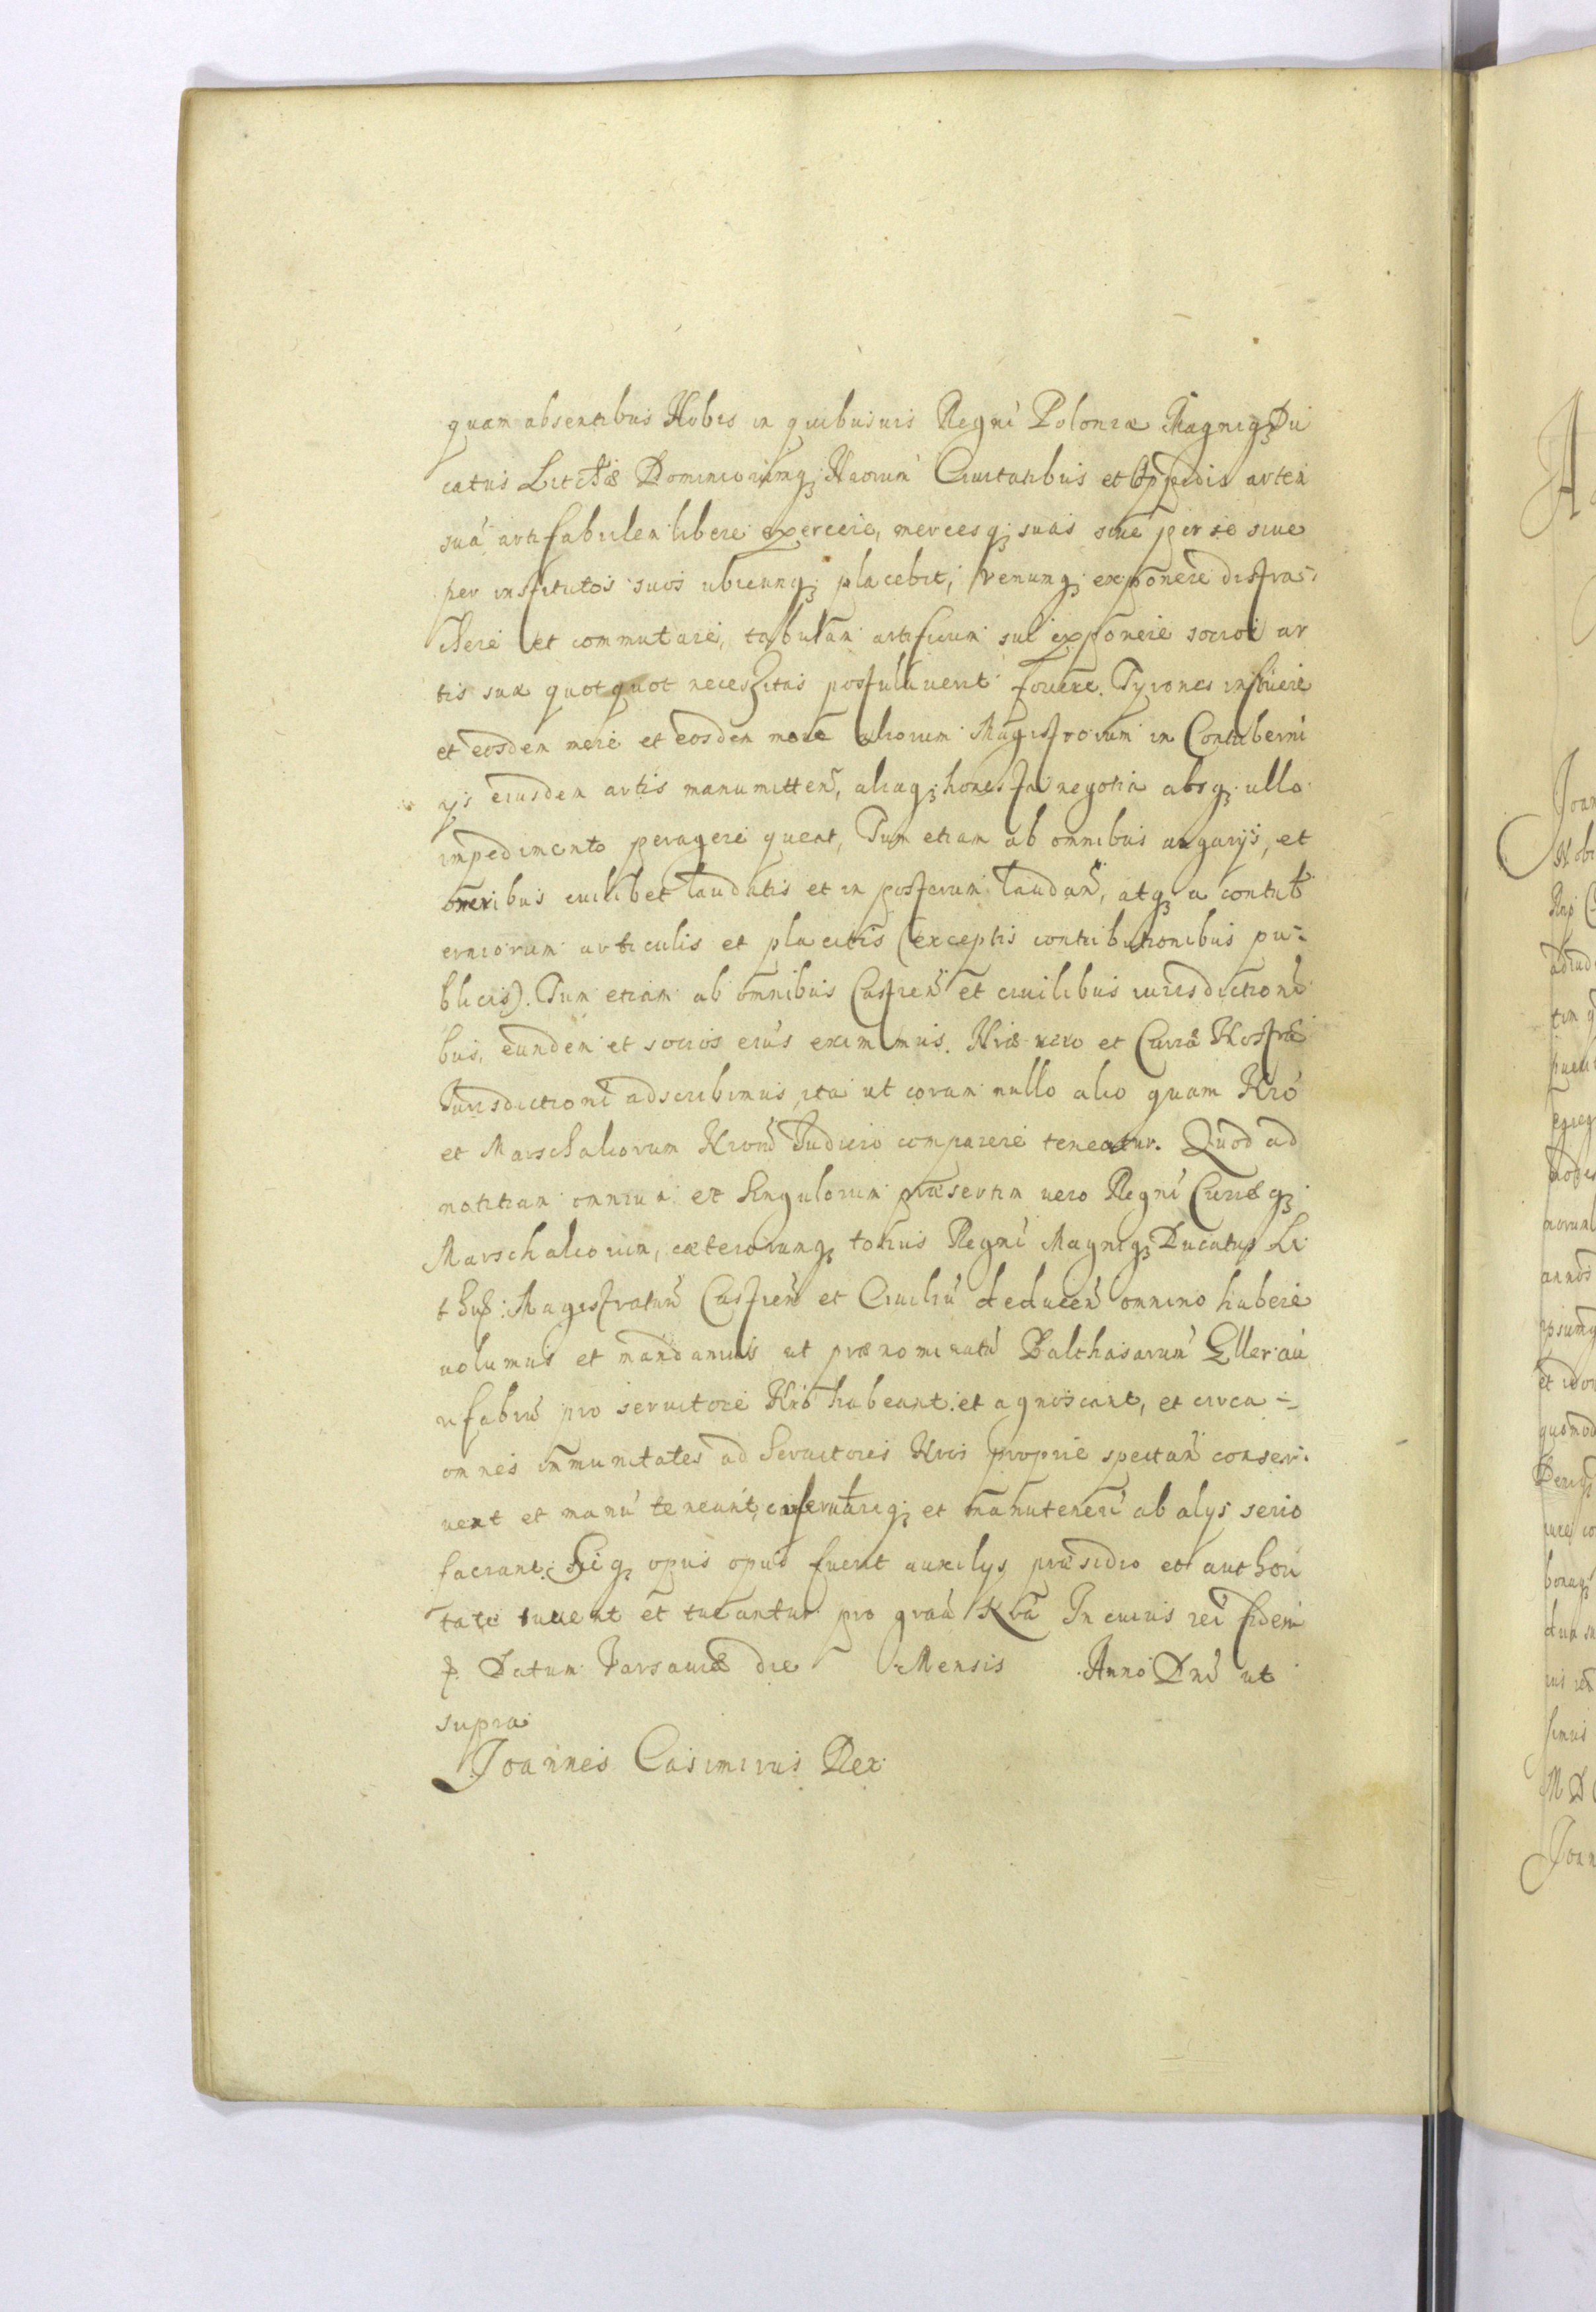 quam absentibus Nobis in quibusuis Regni Poloniæ Magniq Du
catus Litthæ Dominiorumq Nrorum Ciuitatibus et Oppidis artem
suá artifabrilem libere exercere, mercesq suas siue per se siue
per institutos suos ubicunq placebit, venunq exponere distra-
here et commutare, tabulam artificum sui exponere socios ar
tis suæ quotquot necessitas postulauerit fouere. Tyrones
et eosdem mere et eosdem more aliorum Magistrorum in Contuberni
ys eiusdem artis manumitteñ, aliaq honesta negotia absq ullo
impedimento peragere queat, Tum etiam ab omnibus angarijs, et
oneribus cuilibet laudatis et in posterum laudañ, atq a contub
erniorum articulis et placitis (exceptis contributionibus pu-
blicis). Tum etiam ab omnibus Castreñ et ciuilibus iurisdictioni
bus, eundem et socios eius eximimus. Nræ vero et Curiæ Nostræ
Iurisdictioni adscribimus, ita ut coram nullo alio quam Nro
et Marschalcorum Nrorũ Iudicio comparere teneatur. Quod ad
notitiam omnium et singulorum præsertim vero Regni Curiæq
Marschalcorum, cæterorumq totius Regni Magniq Ducatus Li
thuæ: Magistratuũ Castreñ et Ciuiliũ deduceñ omnino habere
uolumus et mandamus ut prænominatũ Balthasarum Eller au
rifabrũ pro seruitore Nro habeant et agnoscant, et circa
omnes immunitates ad Seruitores Nros proprie spectañ conser-
uent et manu teneant, conseruariq et manuteneri ab alys serio
faciant. Siq opus opus fuerit auxilys præsidio et authori
tate iuuent et tueantur pro graã Nra In cuius rei fidem
Datum Varsauiæ die Mensis Anno Dni ut
supra
Joannes Casimirus Rex